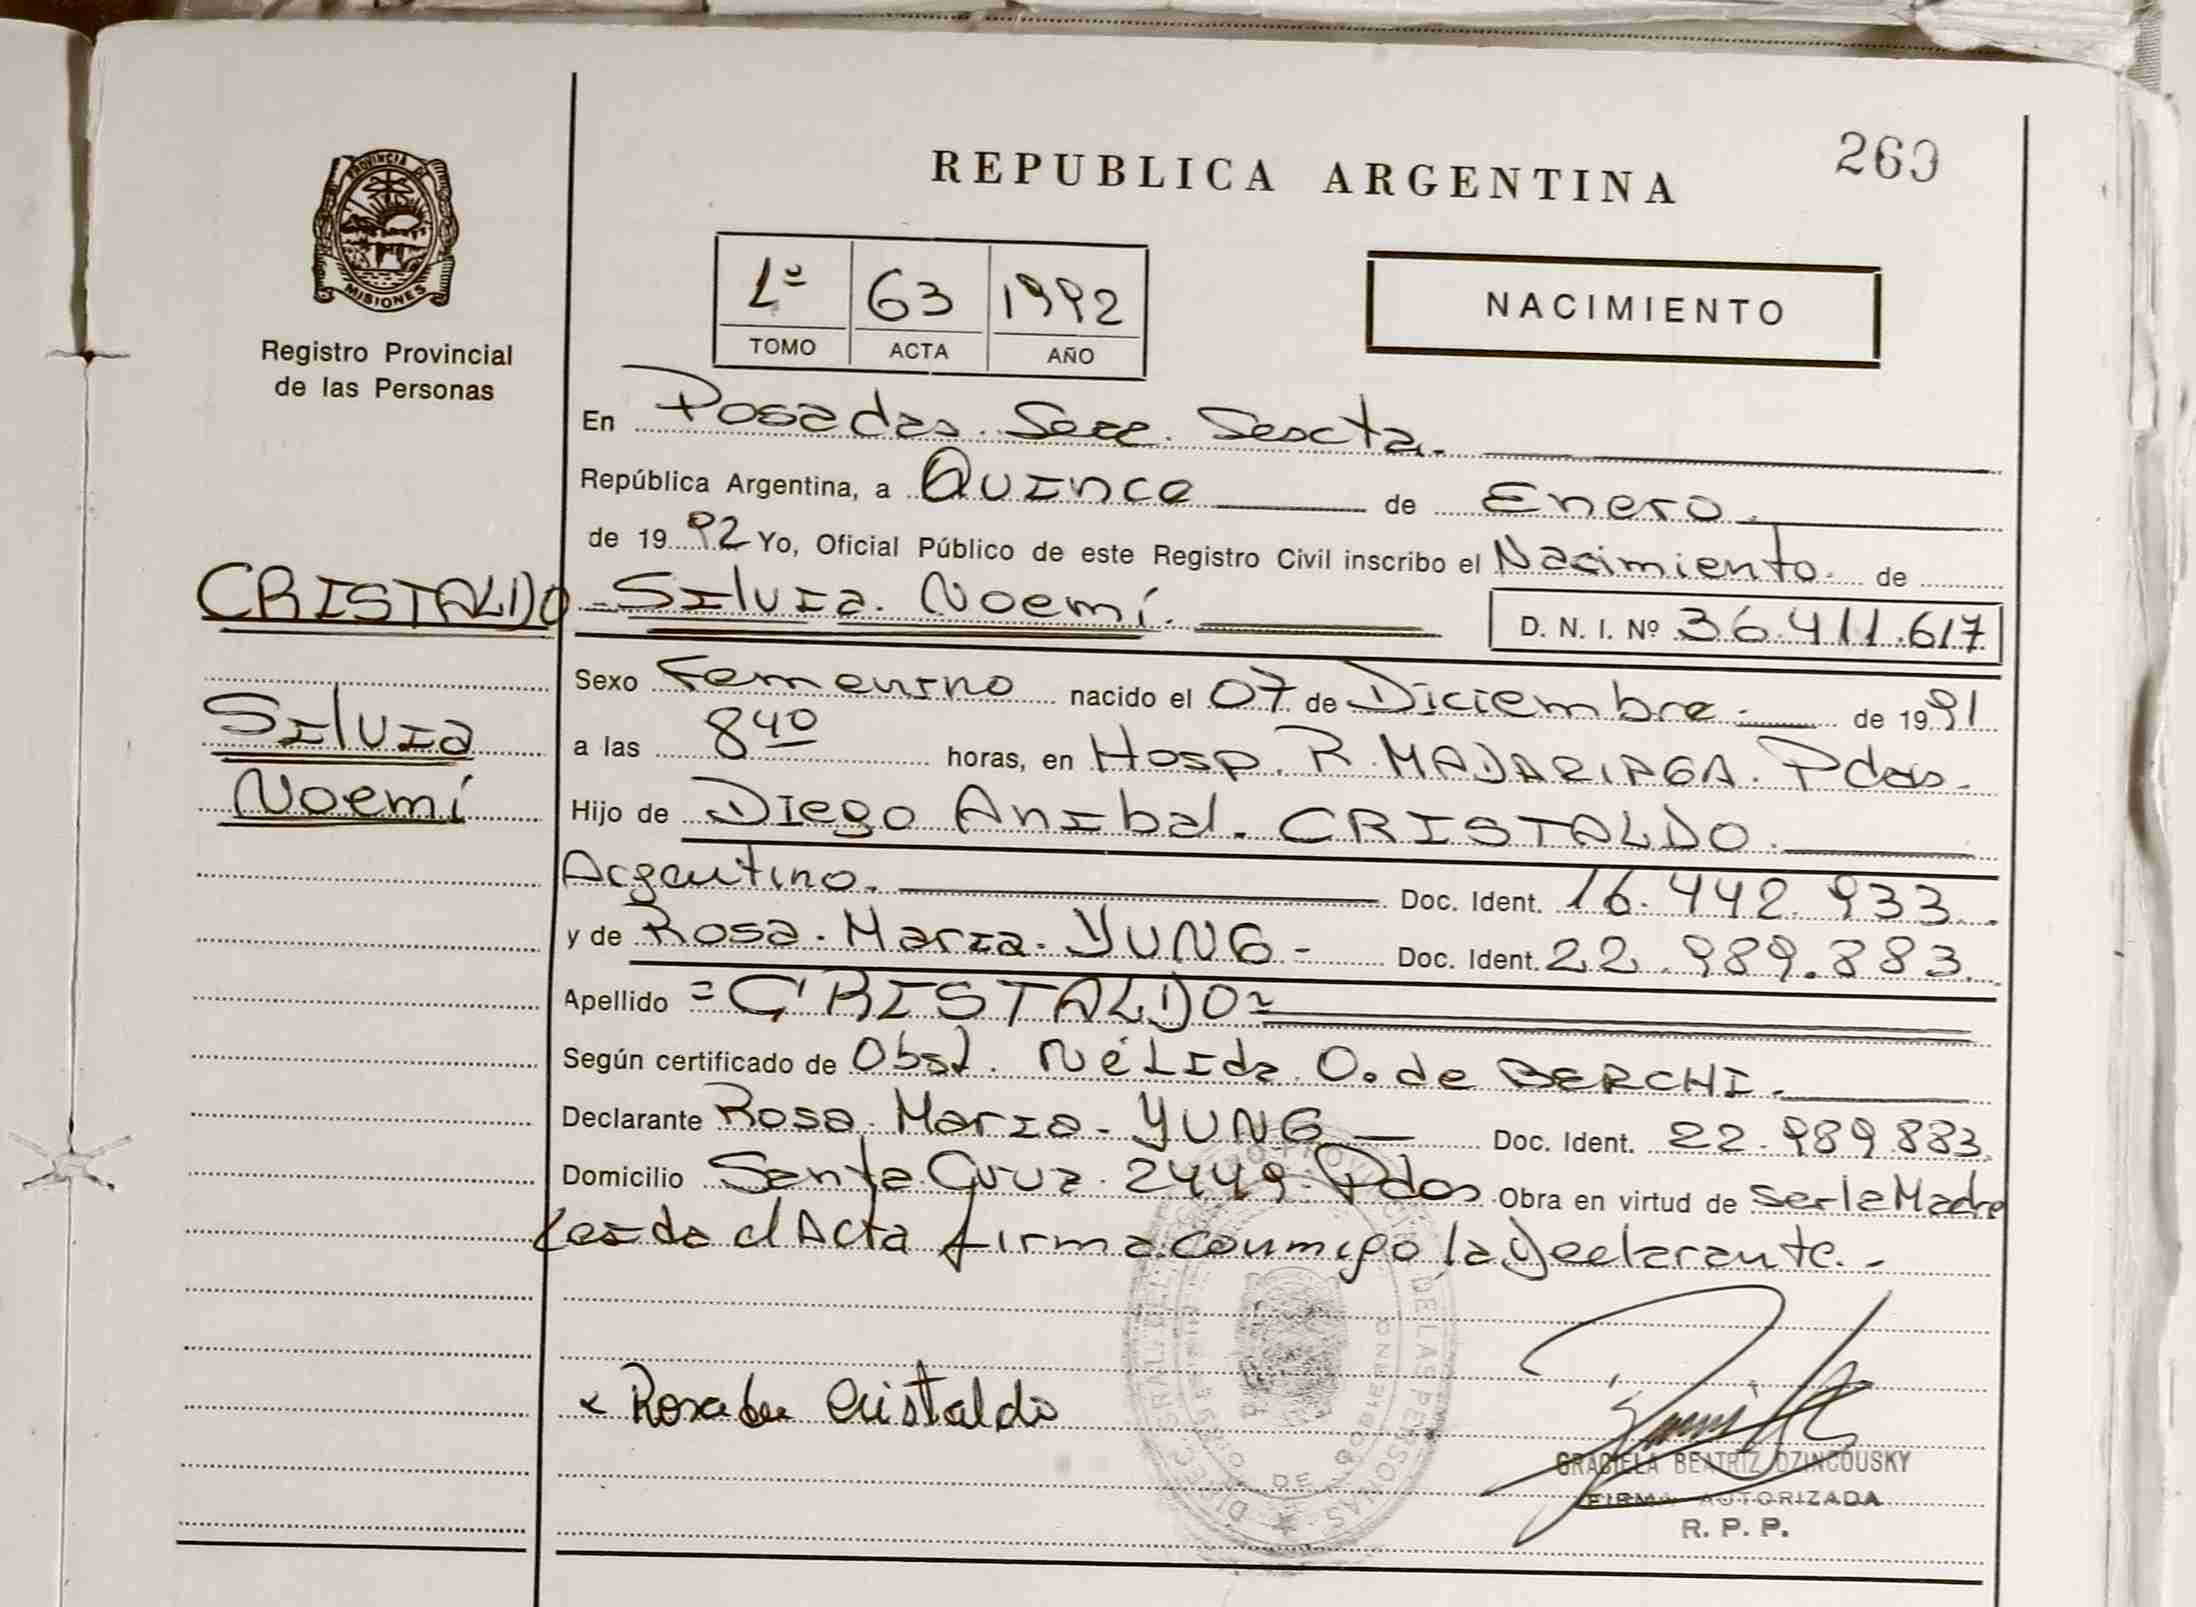 REPUBLICA ARGENTINA
260
PROVINCIA DE
MISIONES
Registro Provincial
de las Personas
1º 63 1992
TOMO ACTA AÑO
NACIMIENTO
En Posadas. Secc. Sexta.
República Argentina, a Quince de Enero.
de 1992 Yo, Oficial Público de este Registro Civil inscribo el Nacimiento. de
CRISTALDO - Silvia. Noemí.
D. N. I. Nº 36.411.617
Sexo Femenino nacido el 07 de Diciembre. de 1991
Silvia
a las 8 40 horas, en Hosp. R. MADARIAGA. Pdas.
Noemí
Hijo de Diego Anibal. CRISTALDO.
Argentino. Doc. Ident. 16.442.933.
y de Rosa. Maria. YUNG - Doc. Ident. 22.989.883.
Apellido =CRISTALDO=
Según certificado de Obst. Nélida. O. de BERCHI.
Declarante Rosa. Maria - YUNG — Doc. Ident. 22.989.883.
Domicilio Santa Cruz. 2449. Pdas Obra en virtud de ser la Madre
Leida el Acta firma conmigo la Declarante. -
x Cristaldo
GRACIELA BEATRIZ DZINCOUSKY
FIRMA AUTORIZADA
R. P. P.
DE LAS PERSONAS
DE GOBIERNO